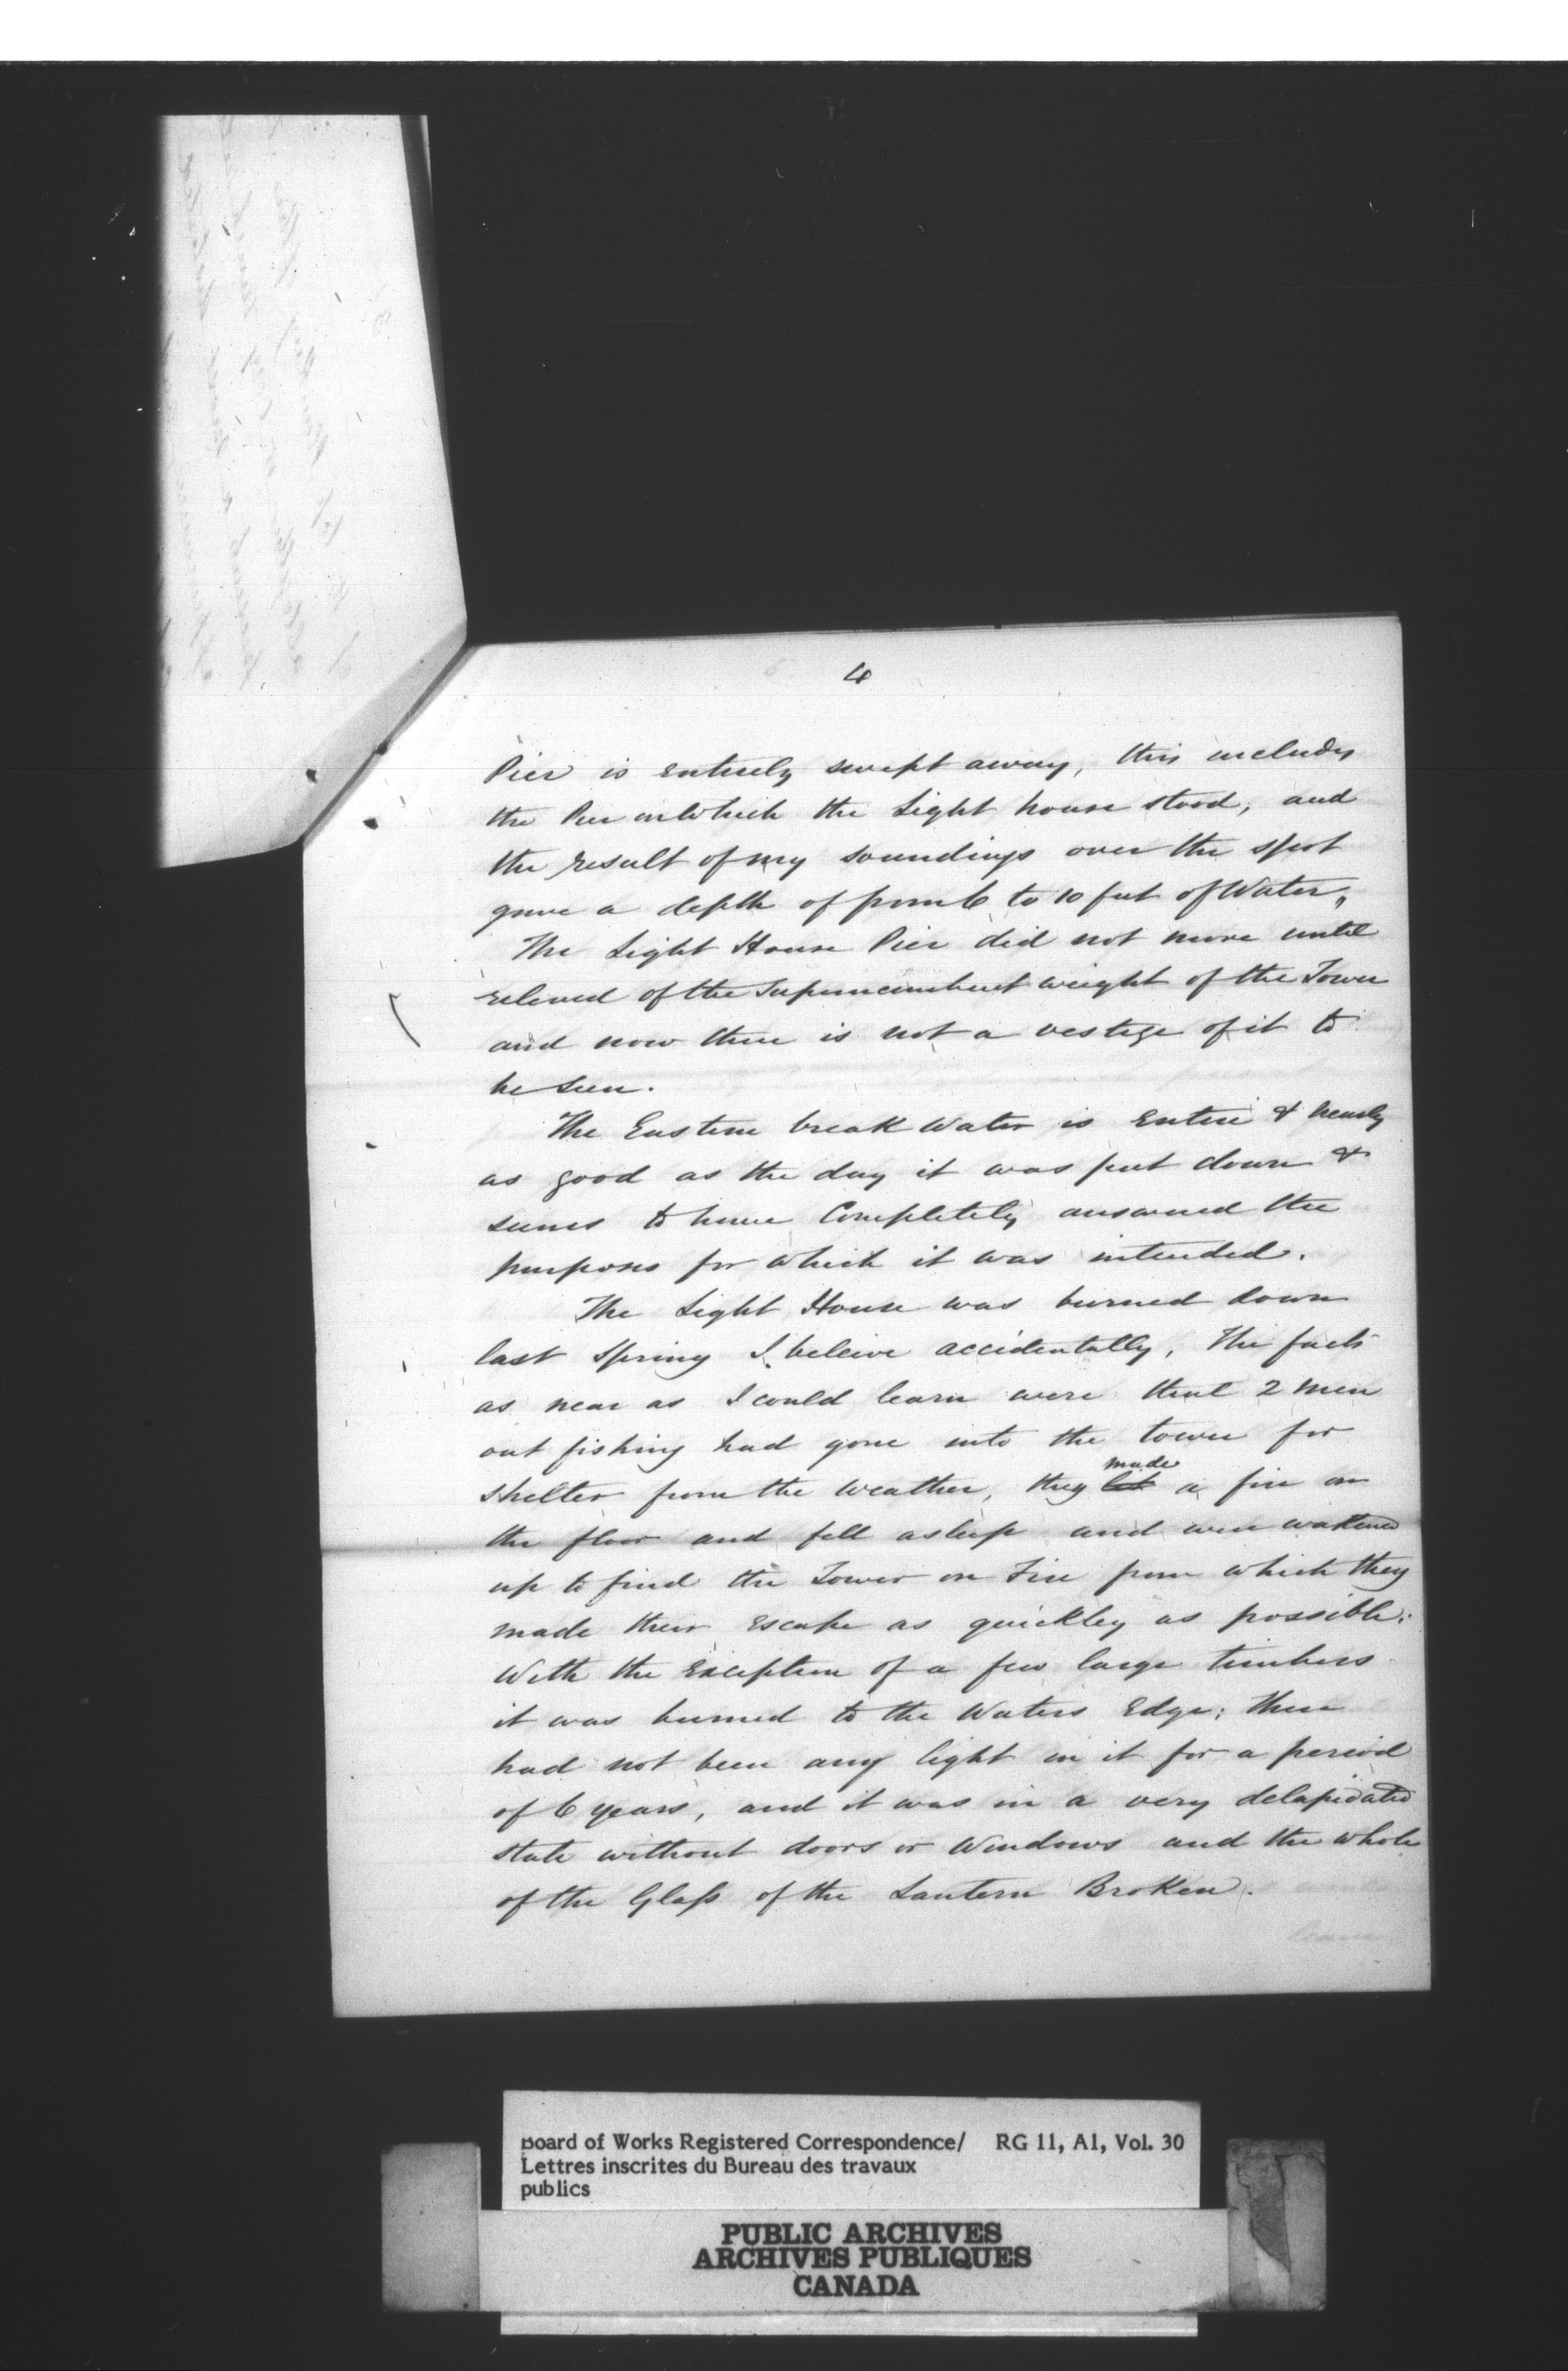 4
Pier is entirely swept away, this includes
the Pier on Which the Light house stood, and
the result of my soundings over the spot
gave a depth of from 6 to 10 feet of Water,,
The Light House Pier did not move until
releived of the Superincumbent weight of the Tower
and now there is not a vestige of it to
be seen.
The Eastern break Water is Entire & nearly
as good as the day it was put down &
seems to have Completely answered the
purposes for which it was intended.
The Light House was burned down
last Spring I beleive accidentally, The facts
as near as I could learn were that 2 men
out fishing had gone into the tower for
made
shelter from the Weather, they let a fire on
the floor and fell asleep and were wakened
up to find the Tower on Fire from which they
made their Escape as quickley as possible.
With the Exception of a few large timbers
it was burned to the Waters Edge; there
had not been any light in it for a period
of 6 years, and it was in a very delapidated
state without doors or Windows and the whole
of the Glass of the Lantern Broken.
Board of Works Registered Correspondence/ RG 11, A1, Vol. 30
Lettres inscrites du Bureau des travaux
publics
PUBLIC ARCHIVES
ARCHIVES PUBLIQUES
CANADA